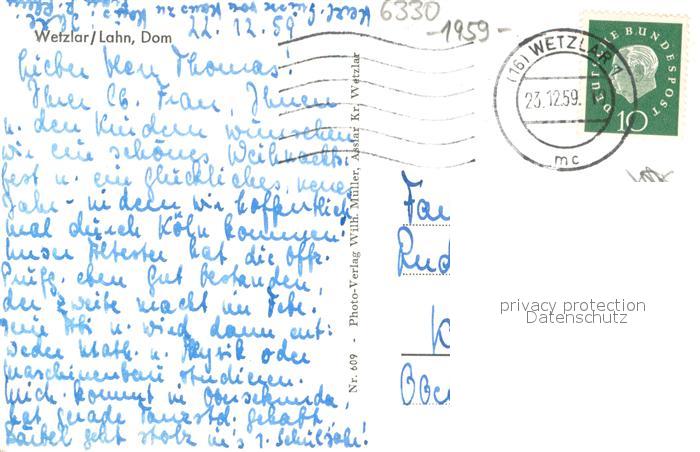 6330
-1959-
22.12.59
Wetzlar/Lahn, Dom
Lieber Herr Thomas!
Ihrer lb. Frau, Ihnen
u. den Kindern wünschen
wir ein schönes Weihnachts-
fest u. ein glückliches neues
Jahr - in dem wir hoffentlich
mal durch Köln kommen!
Unser Ältester hat die Offz.
Prüfg. eben gut bestanden,
der zweite macht im Febr.
sein Abi u. wird dann ent-
weder Math. u. Physik oder
Maschinenbau studieren.
Mich. kommt in Obersekunda,
hat gerade Tanzstd. gehabt,
Bärbel geht stolz in's 1. Schuljahr!
Nr. 609 - Photo-Verlag Wilh. Müller, Asslar Kr. Wetzlar
(16) WETZLAR 1
23.12.59.
mc
DEUTSCHE BUNDESPOST
10
Fa
Rud
K
Ober
privacy protection
Datenschutz